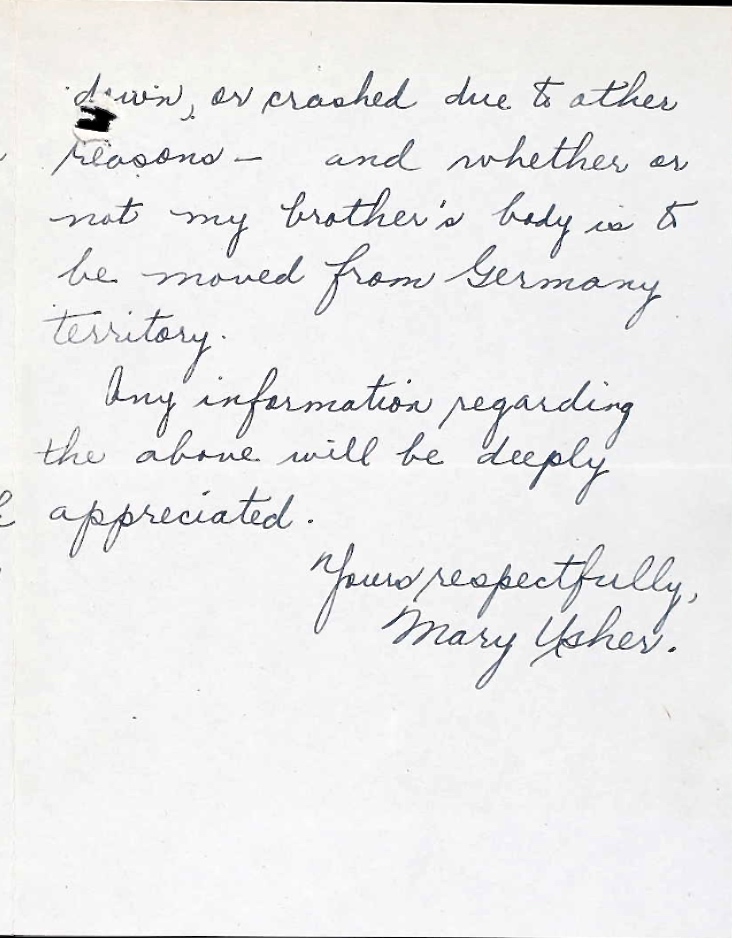 down, or crashed due to other
reasons — and whether or
not my brother's body is to
be moved from Germany
territory.
Any information regarding
the above will be deeply
appreciated.
Yours respectfully,
Mary Usher.